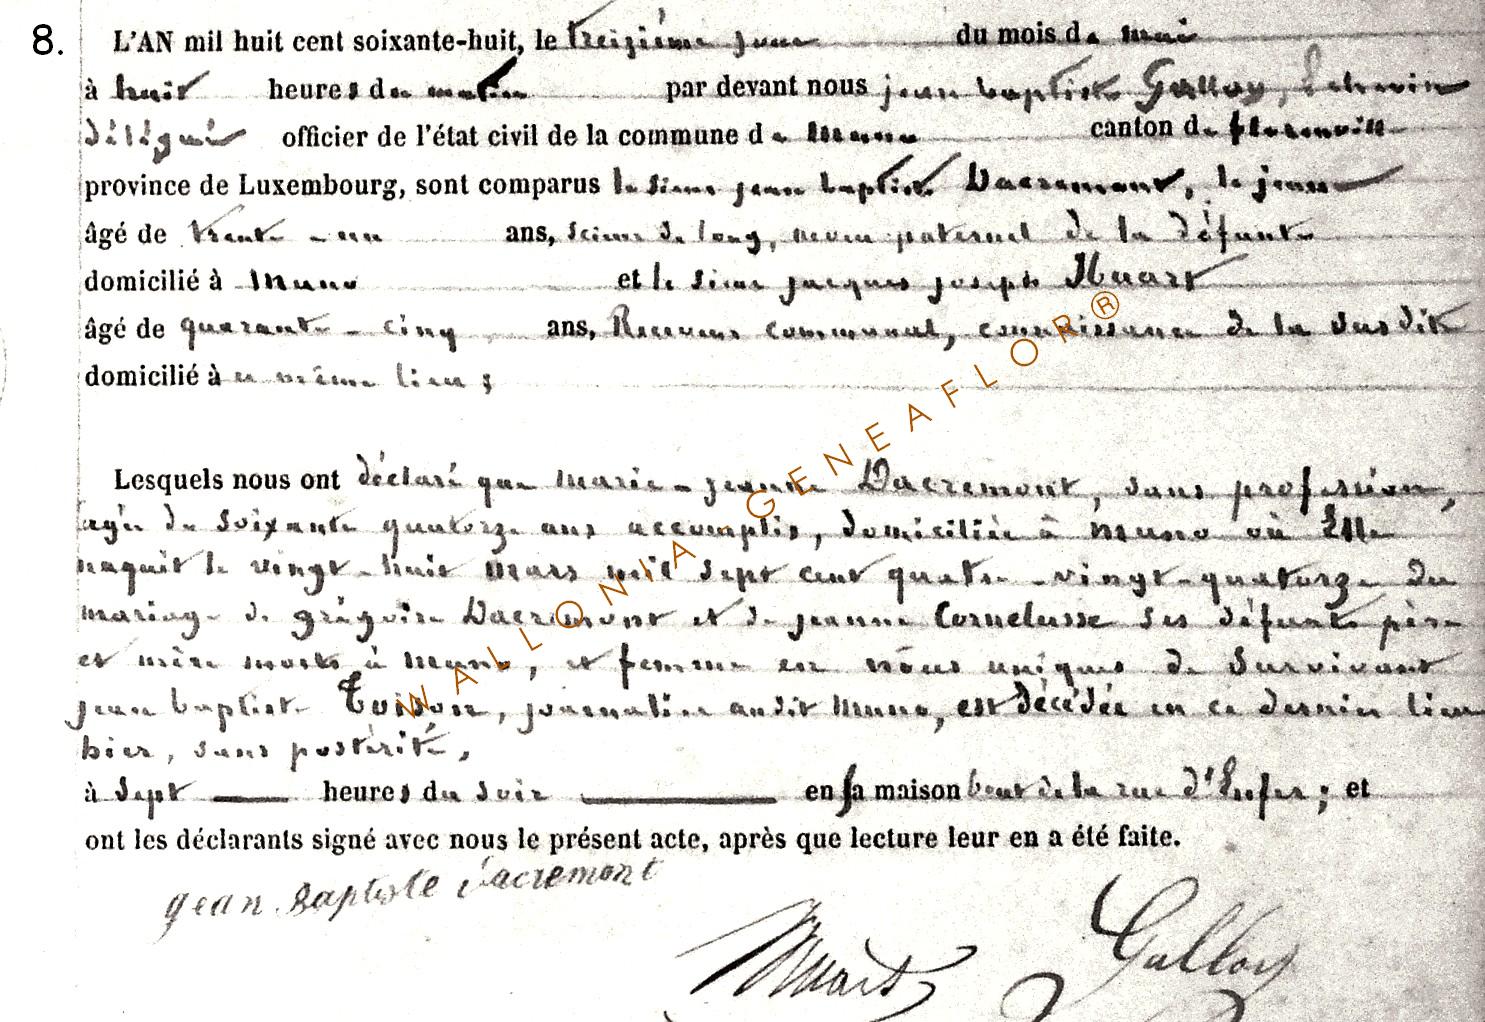 8. L'AN mil huit cent soixante-huit, le treizième jour du mois de mai
à huit heures du matin par devant nous jean baptiste Galloy, Echevin
délégué officier de l'état civil de la commune de Muno canton de florenville
province de Luxembourg, sont comparus le sieur jean baptiste Dacremont, le jeune
âgé de trente-un ans, scieur de long, neveu paternel de la défunte
domicilié à Muno et le sieur jacques joseph Huart
âgé de quarante-cinq ans, Receveur communal, connaissance de la susdite
domicilié à ce même lieu;
Lesquels nous ont déclaré que Marie-jeanne Dacremont, sans profession,
agée de soixante quatorze ans accomplis, domiciliée à Muno où Elle
naquit le vingt-huit mars mil sept cent quatre-vingt-quatorze du
mariage de grégoire Dacremont et de jeanne Cornelusse ses défunts père
et mère morts à Muno, et femme en nôces uniques de Survivant
jean baptiste Toisoux, journalier audit Muno, est décédée en ce dernier lieu
hier, sans postérité,
à sept heures du soir en sa maison bout de la rue d'Enfer; et
ont les déclarants signé avec nous le présent acte, après que lecture leur en a été faite.
jean Baptiste dacremont
Huart Galloy
WALLONIA GENEAFLOR®